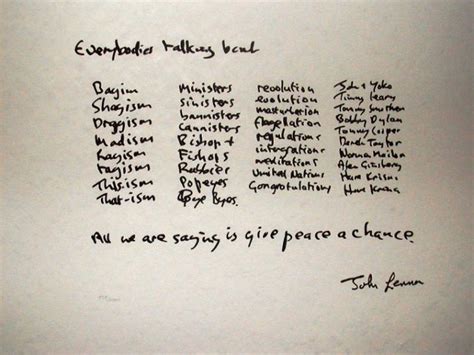 Everybodies talking bout
Bagism Ministers revolution John & Yoko
Shagism sinisters evolution Timmy Leary
Dragism bannisters masturbation Tommy Smothers
Madism Cannisters flagellation Bobby Dylan
Ragism Bishop & regulations Tommy Cooper
Tagism Fishops integrations Derek Taylor
This-ism Popeyes meditations Norman Mailer
That-ism Bye Byes. United Nations Alan Ginsberg
Congratulations Hare Krishna
Hare Krishna
All we are saying is give peace a chance.
John Lennon